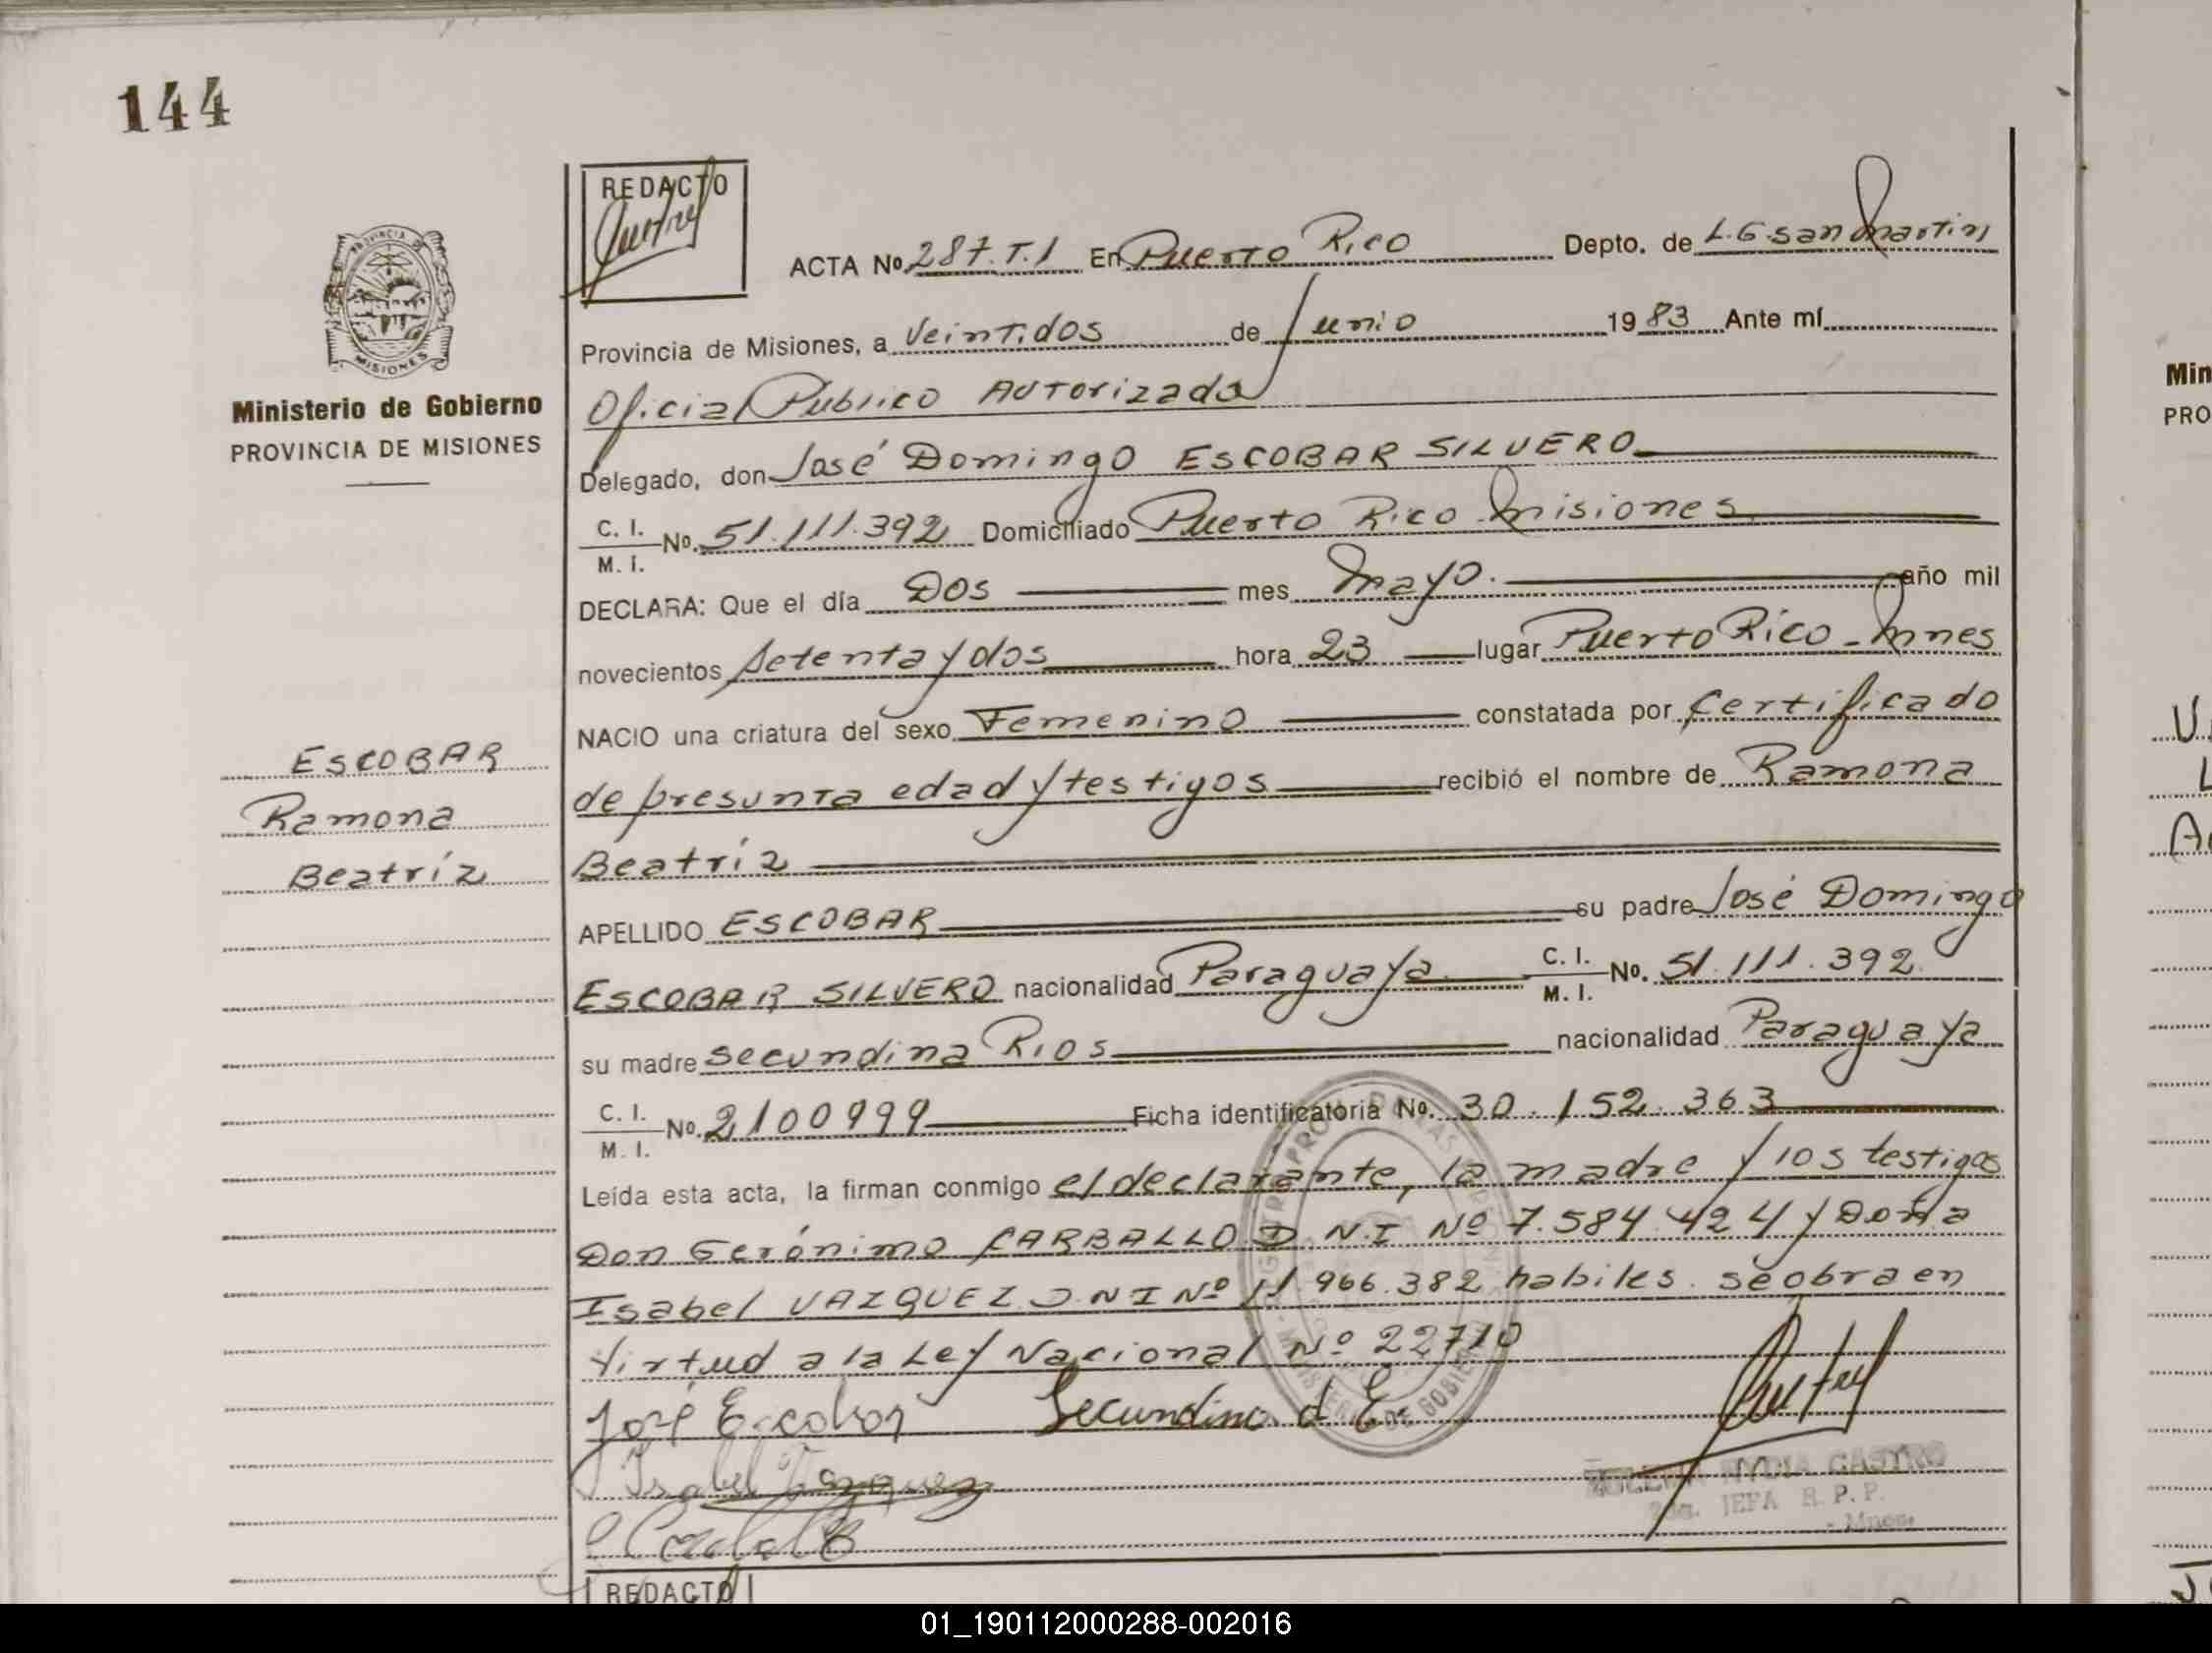 144
REDACTO
ACTA Nº 287.T.1 En Puerto Rico Depto. de L.G. San Martin
Provincia de Misiones, a Veintidos de Junio 1983 Ante mí
Oficial Publico Autorizado
Delegado, don José Domingo ESCOBAR SILVERO
C. I.
M. I. Nº. 51.111.392 Domiciliado Puerto Rico Misiones
DECLARA: Que el día Dos mes Mayo. año mil
novecientos Setenta y dos hora 23 lugar Puerto Rico - Mnes
NACIO una criatura del sexo Femenino constatada por Certificado
de presunta edad y testigos recibió el nombre de Ramona
Beatríz
APELLIDO ESCOBAR su padre José Domingo
ESCOBAR SILVERO nacionalidad Paraguaya C. I.
M. I. No. 51.111.392
su madre Secundina Rios nacionalidad Paraguaya
C. I.
M. I. Nº. 2100999 Ficha identificatoria No. 30.152.363
Leída esta acta, la firman conmigo el declarante, la madre y los testigos
Don Gerónimo CARBALLO D.N.I Nº 7.584.424 y Doña
Isabel VAZQUEZ D.N.I Nº 11.966.382 habiles. se obra en
Virtud a la Ley Nacional Nº 22710
José Escobar Secundina d E.
Isabel Vazquez
NYDIA CASTRO
JEFA R.P.P.
- Mnes.
PROVINCIA DE MISIONES
Ministerio de Gobierno
PROVINCIA DE MISIONES
ESCOBAR
Ramona
Beatríz
REDACTO
Min
PRO
01_190112000288-002016